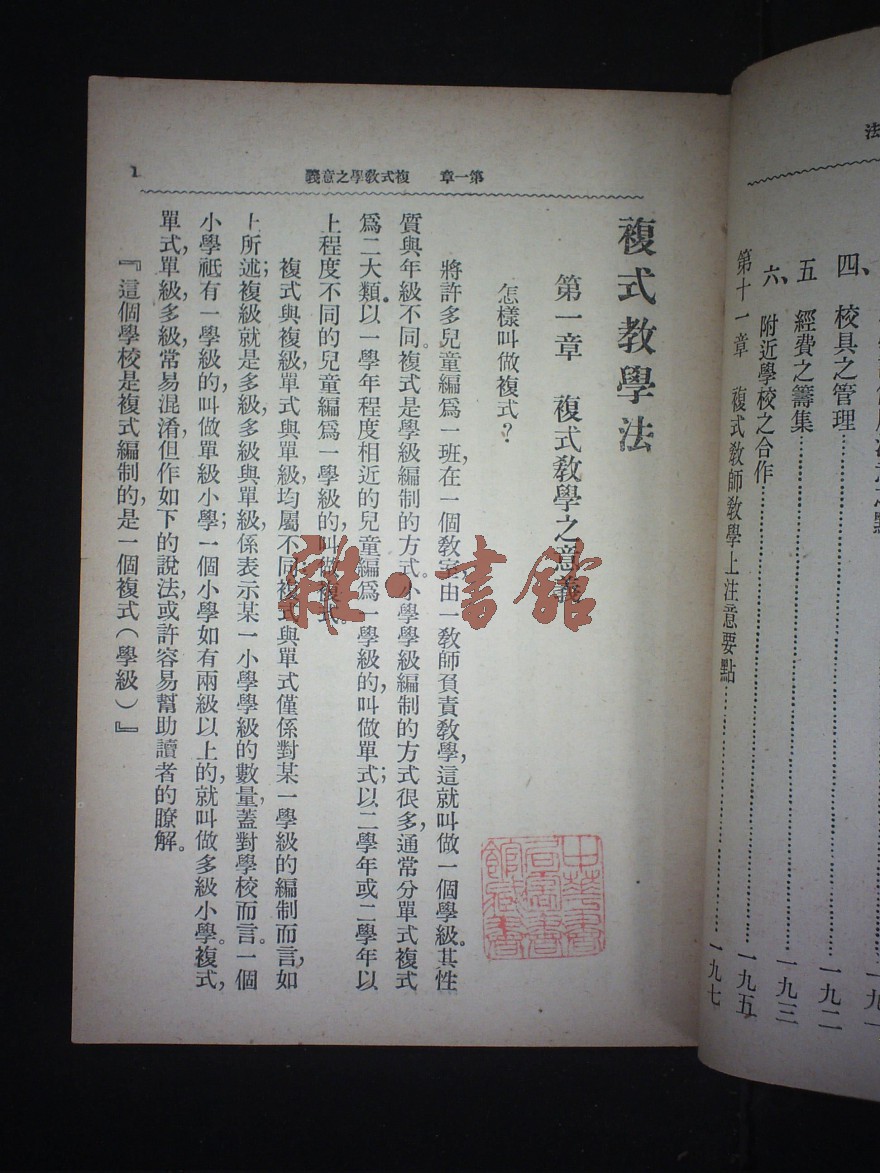 第一章　複式教學之意義
1
複式教學法
第一章　複式教學之意義
怎樣叫做複式？
將許多兒童編爲一班，在一個教室，由一教師負責教學，這就叫做一個學級。其性
質與年級不同。複式是學級編制的方式。小學學級編制的方式很多，通常分單式複式
爲二大類。以一學年程度相近的兒童編爲一學級的，叫做單式；以二學年或二學年以
上程度不同的兒童編爲一學級的，叫做複式。
複式與複級，單式與單級，均屬不同。複式與單式僅係對某一學級的編制而言，如
上所述；複級就是多級，多級與單級，係表示某一小學學級的數量，蓋對學校而言。一個
小學祇有一學級的，叫做單級小學；一個小學如有兩級以上的，就叫做多級小學。複式，
單式，單級，多級，常易混淆，但作如下的說法，或許容易幫助讀者的瞭解。
『這個學校是複式編制的，是一個複式（學級）』
雜·書館
中華書
局圖書
館藏書
法
四、校具之管理……一九二
五　經費之籌集……一九三
六、附近學校之合作……一九五
第十一章　複式教師教學上注意要點……一九七